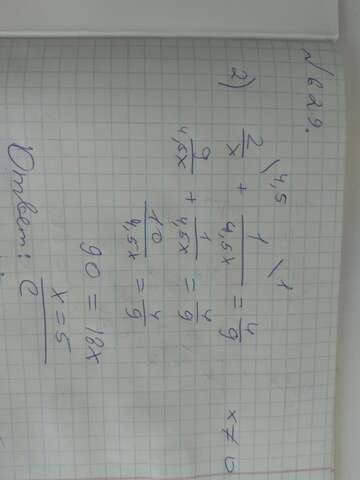 № 629.
2) 2/x \4,5 + 1/4,5x \1 = 4/9 x ≠ 0
9/4,5x + 1/4,5x = 4/9
10/4,5x = 4/9
90 = 18x
x = 5
Ответ: С